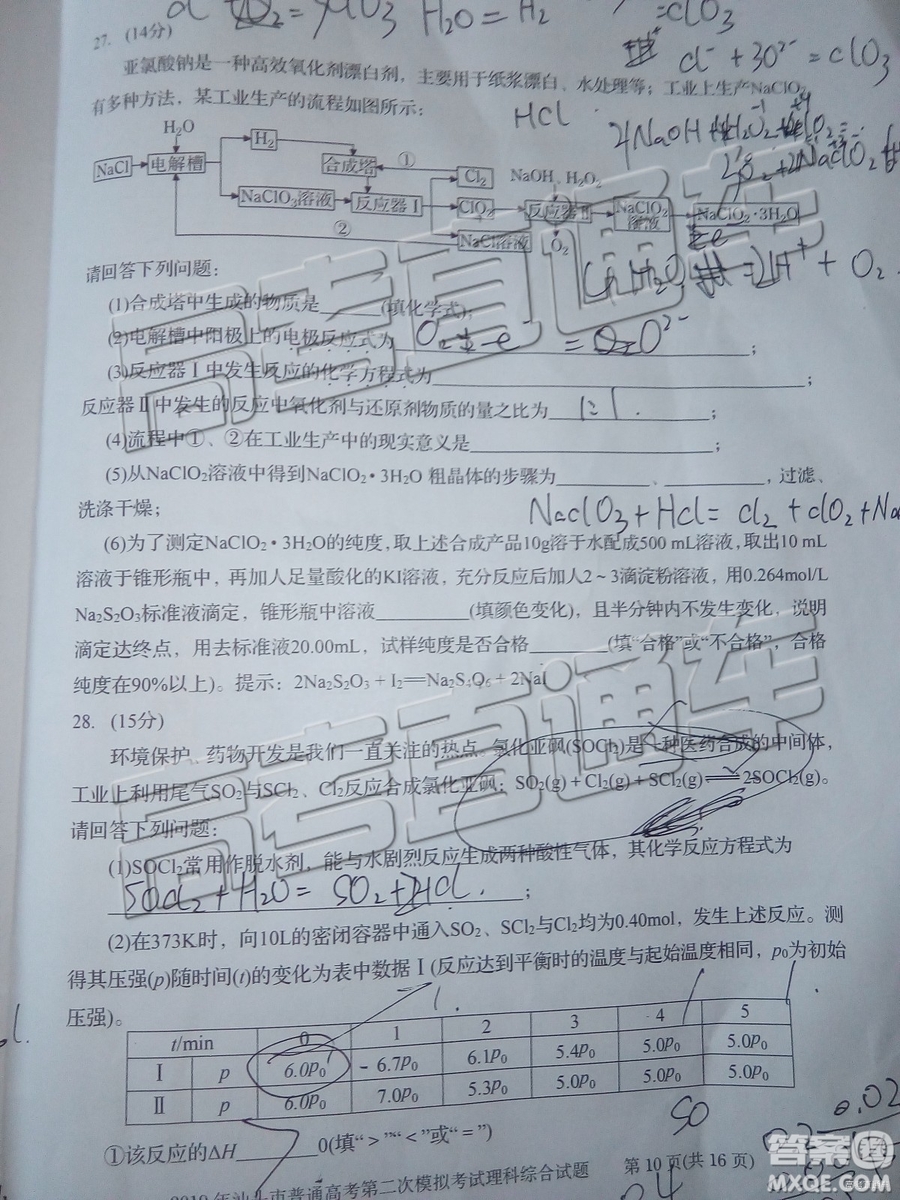 27. (14分)
亚氯酸钠是一种高效氧化剂漂白剂，主要用于纸浆漂白、水处理等；工业上生产NaClO₂
有多种方法，某工业生产的流程如图所示：
H₂O
NaCl 电解槽 H₂ 合成塔 ① Cl₂ NaOH、H₂O₂
NaClO₃溶液 反应器Ⅰ ClO₂ 反应器Ⅱ NaClO₂溶液 NaClO₂·3H₂O
② NaCl溶液 O₂
H₂O = H₂
HCl
请回答下列问题：
(1)合成塔中生成的物质是______(填化学式)；
(2)电解槽中阳极上的电极反应式为______；
(3)反应器Ⅰ中发生反应的化学方程式为______；
反应器Ⅱ中发生的反应中氧化剂与还原剂物质的量之比为 1:1. ；
(4)流程中①、②在工业生产中的现实意义是______；
(5)从NaClO₂溶液中得到NaClO₂·3H₂O 粗晶体的步骤为______、______，过滤、
洗涤干燥；
NaClO₃+HCl= Cl₂+ClO₂+Na
(6)为了测定NaClO₂·3H₂O的纯度，取上述合成产品10g溶于水配成500 mL溶液，取出10 mL
溶液于锥形瓶中，再加人足量酸化的KI溶液，充分反应后加人2~3滴淀粉溶液，用0.264mol/L
Na₂S₂O₃标准液滴定，锥形瓶中溶液______(填颜色变化)，且半分钟内不发生变化，说明
滴定达终点，用去标准液20.00mL，试样纯度是否合格______(填“合格”或“不合格”，合格
纯度在90%以上)。提示：2Na₂S₂O₃+I₂══Na₂S₄O₆+2NaI
28. (15分)
环境保护、药物开发是我们一直关注的热点。氯化亚砜(SOCl₂)是一种医药合成的中间体，
工业上利用尾气SO₂与SCl₂、Cl₂反应合成氯化亚砜：SO₂(g)+Cl₂(g)+SCl₂(g)⇌2SOCl₂(g)。
请回答下列问题：
(1)SOCl₂常用作脱水剂，能与水剧烈反应生成两种酸性气体，其化学反应方程式为
SOCl₂+H₂O= SO₂+2HCl. ；
(2)在373K时，向10L的密闭容器中通入SO₂、SCl₂与Cl₂均为0.40mol，发生上述反应。测
得其压强(p)随时间(t)的变化为表中数据Ⅰ(反应达到平衡时的温度与起始温度相同，p₀为初始
压强)。
t/min 0 1 2 3 4 5
Ⅰ p 6.0p₀ 6.7p₀ 6.1p₀ 5.4p₀ 5.0p₀ 5.0p₀
Ⅱ p 6.0p₀ 7.0p₀ 5.3p₀ 5.0p₀ 5.0p₀ 5.0p₀
①该反应的ΔH______0(填“>”“<”或“=”)
市普通高考第二次模拟考试理科综合试题 第 10 页(共 16 页)
高考直通车
高考直通车
答案圈
MXQE.COM